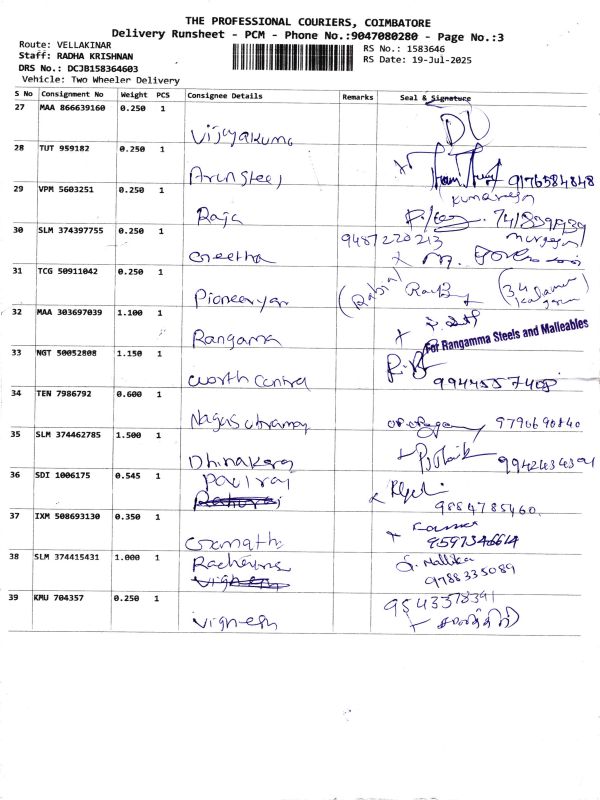 THE PROFESSIONAL COURIERS, COIMBATORE
Delivery Runsheet - PCM - Phone No.:9047080280 - Page No.:3
Route: VELLAKINAR
RS No.: 1583646
Staff: RADHA KRISHNAN
RS Date: 19-Jul-2025
DRS No.: DCJB158364603
Vehicle: Two Wheeler Delivery
S No Consignment No Weight PCS Consignee Details Remarks Seal & Signature
27 MAA 866639160 0.250 1
Vijayakumar
28 TUT 959182 0.250 1
Arun Steel 9176584848
29 VPM 5603251 0.250 1 Kumaresan
Raja
30 SLM 374397755 0.250 1 9487220213 murugesan
Geetha
31 TCG 50911042 0.250 1
Pioneeryan
32 MAA 303697039 1.100 1
Rangama For Rangamma Steels and Malleables
33 NGT 50052808 1.150 1
worth Central 9944557408
34 TEN 7986792 0.600 1
9790690840
35 SLM 374462785 1.500 1
Dhinakara 9942434391
36 SDI 1006175 0.545 1 Paulraj
9854785460
37 IXM 508693130 0.350 1
Gomathi 9597346614
38 SLM 374415431 1.000 1 G. Mallika
9788335089
39 KMU 704357 0.250 1 9543378391
Vignesh